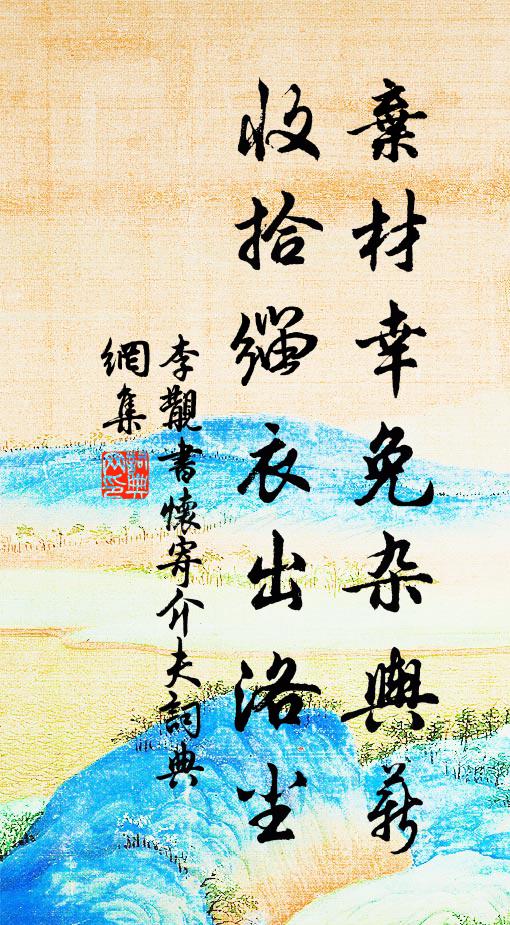 棄材幸免杂輿薪
收拾緇衣出洛尘
李覯書懷寄介夫詞典
網集